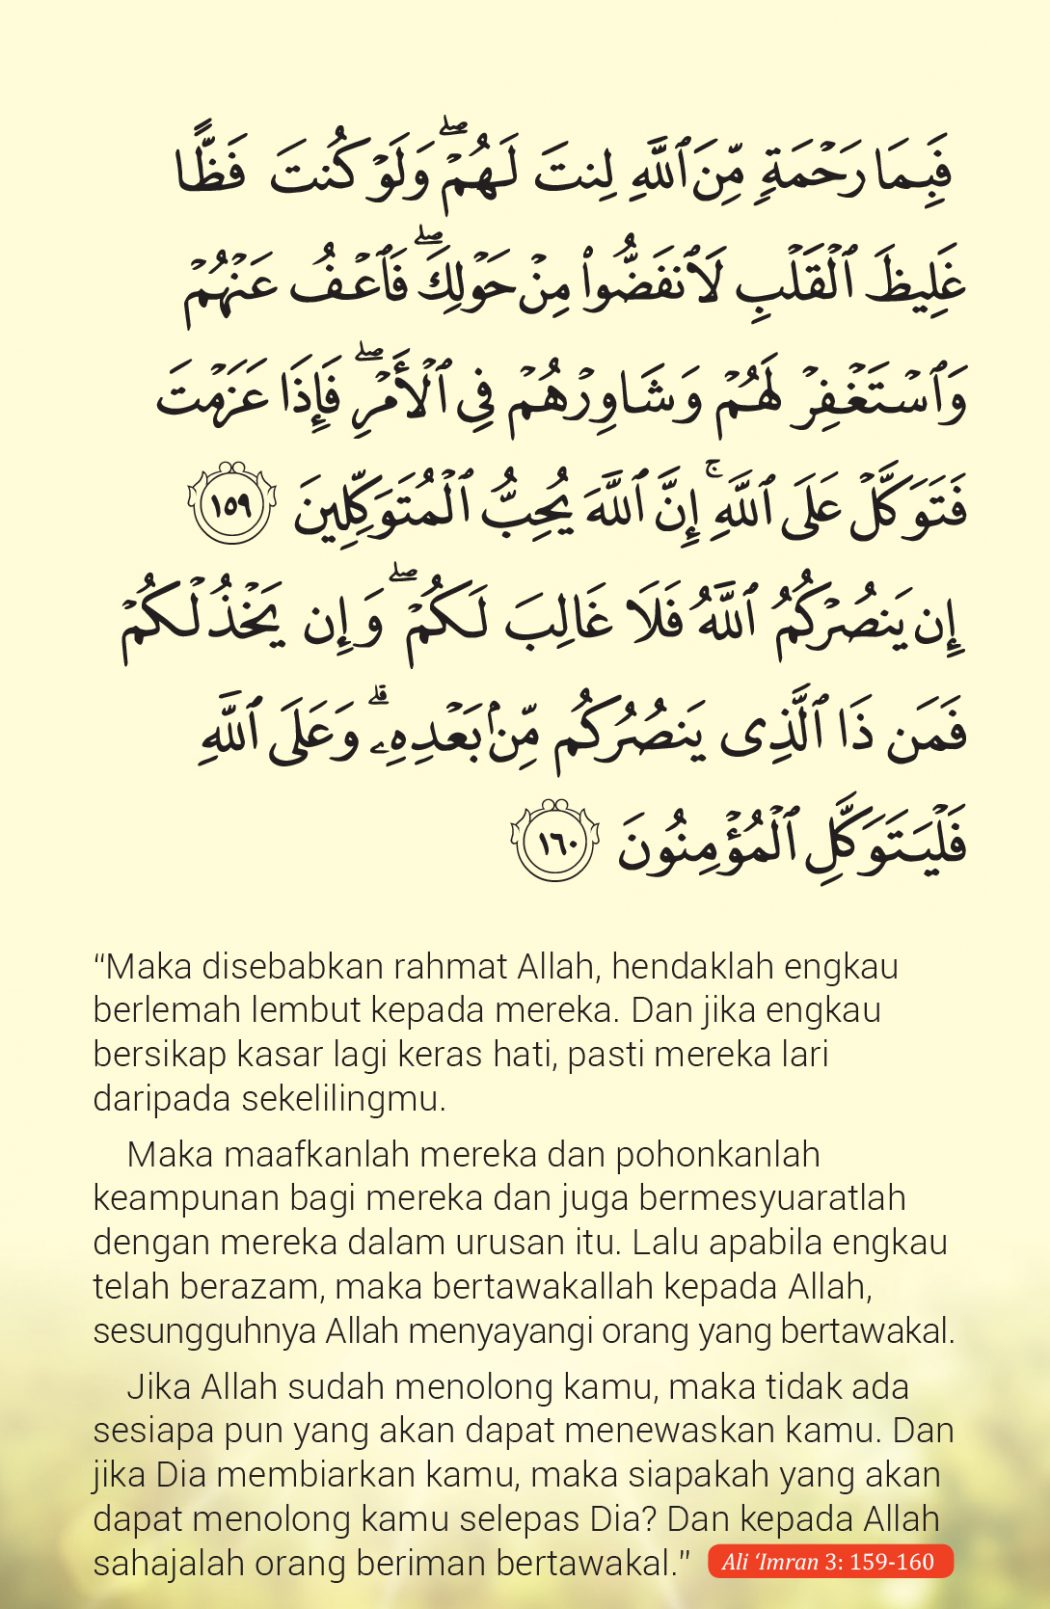 فَبِمَا رَحْمَةٍ مِّنَ ٱللَّهِ لِنتَ لَهُمْ ۖ وَلَوْ كُنتَ فَظًّا
غَلِيظَ ٱلْقَلْبِ لَٱنفَضُّوا۟ مِنْ حَوْلِكَ ۖ فَٱعْفُ عَنْهُمْ
وَٱسْتَغْفِرْ لَهُمْ وَشَاوِرْهُمْ فِى ٱلْأَمْرِ ۖ فَإِذَا عَزَمْتَ
فَتَوَكَّلْ عَلَى ٱللَّهِ ۚ إِنَّ ٱللَّهَ يُحِبُّ ٱلْمُتَوَكِّلِينَ ١٥٩
إِن يَنصُرْكُمُ ٱللَّهُ فَلَا غَالِبَ لَكُمْ ۖ وَإِن يَخْذُلْكُمْ
فَمَن ذَا ٱلَّذِى يَنصُرُكُم مِّنۢ بَعْدِهِۦ ۗ وَعَلَى ٱللَّهِ
فَلْيَتَوَكَّلِ ٱلْمُؤْمِنُونَ ١٦٠
“Maka disebabkan rahmat Allah, hendaklah engkau
berlemah lembut kepada mereka. Dan jika engkau
bersikap kasar lagi keras hati, pasti mereka lari
daripada sekelilingmu.
Maka maafkanlah mereka dan pohonkanlah
keampunan bagi mereka dan juga bermesyuaratlah
dengan mereka dalam urusan itu. Lalu apabila engkau
telah berazam, maka bertawakallah kepada Allah,
sesungguhnya Allah menyayangi orang yang bertawakal.
Jika Allah sudah menolong kamu, maka tidak ada
sesiapa pun yang akan dapat menewaskan kamu. Dan
jika Dia membiarkan kamu, maka siapakah yang akan
dapat menolong kamu selepas Dia? Dan kepada Allah
sahajalah orang beriman bertawakal.” Ali ‘Imran 3: 159-160